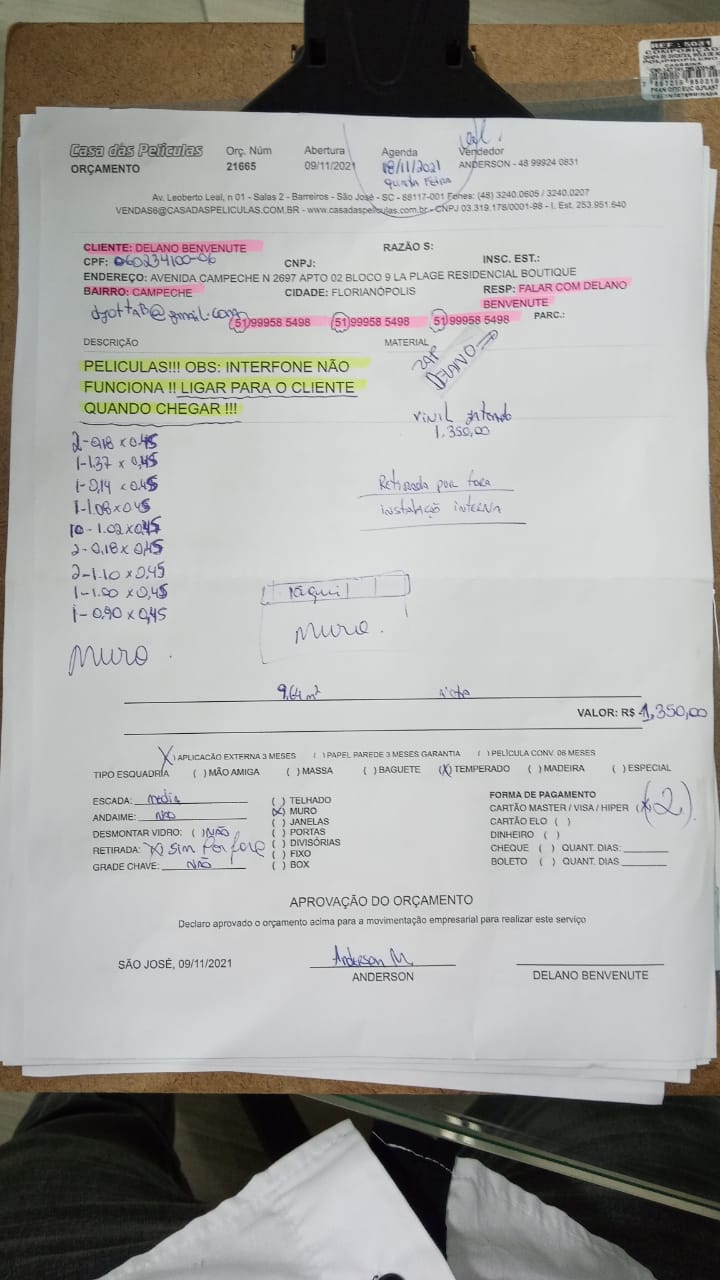 REF.: 5031
COMPOSIÇÃO
Casa das Películas
ORÇAMENTO
Orç. Núm
21665
Abertura
09/11/2021
Agenda
18/11/2021
quinta feira
Vendedor
ANDERSON - 48 99924 0831
Av. Leoberto Leal, n 01 - Salas 2 - Barreiros - São José - SC - 88117-001 Fones: (48) 3240.0605 / 3240.0207
VENDAS6@CASADASPELICULAS.COM.BR - www.casadaspeliculas.com.br - CNPJ 03.319.178/0001-98 - I. Est. 253.951.640
CLIENTE: DELANO BENVENUTE
RAZÃO S:
CPF: 060234100-06
CNPJ:
INSC. EST.:
ENDEREÇO: AVENIDA CAMPECHE N 2697 APTO 02 BLOCO 9 LA PLAGE RESIDENCIAL BOUTIQUE
BAIRRO: CAMPECHE
CIDADE: FLORIANÓPOLIS
RESP: FALAR COM DELANO
BENVENUTE
(51)99958 5498 (51)99958 5498 (51)99958 5498
PARC.:
DESCRIÇÃO
MATERIAL
PELICULAS!!! OBS: INTERFONE NÃO
FUNCIONA !! LIGAR PARA O CLIENTE
QUANDO CHEGAR !!!
ZAP
DELANO
1.350,00
2-0,18 x 0,45
1-1.37 x 0,45
1-0,14 x 0.45
1-1.08 x 0.45
10-1.02 x 0,45
2-0,18 x 0,45
2-1.10 x 0,45
1-1.00 x 0,45
1-0.90 x 0,45
Retirada por fora
instalação interna
Muro.
Muro.
9.64 m²
VALOR: R$ 1,350,00
(X) APLICACÃO EXTERNA 3 MESES ( ) PAPEL PAREDE 3 MESES GARANTIA ( ) PELÍCULA CONV. 06 MESES
TIPO ESQUADRIA ( ) MÃO AMIGA ( ) MASSA ( ) BAGUETE (X) TEMPERADO ( ) MADEIRA ( ) ESPECIAL
ESCADA: media
ANDAIME: Não
DESMONTAR VIDRO: ( ) NÃO
RETIRADA: (X) Sim Por fora
GRADE CHAVE: NÃO
( ) TELHADO
(X) MURO
( ) JANELAS
( ) PORTAS
( ) DIVISÓRIAS
( ) FIXO
( ) BOX
FORMA DE PAGAMENTO
CARTÃO MASTER / VISA / HIPER (X2)
CARTÃO ELO ( )
DINHEIRO ( )
CHEQUE ( ) QUANT. DIAS:
BOLETO ( ) QUANT. DIAS
APROVAÇÃO DO ORÇAMENTO
Declaro aprovado o orçamento acima para a movimentação empresarial para realizar este serviço
SÃO JOSÉ, 09/11/2021
Anderson M.
ANDERSON
DELANO BENVENUTE